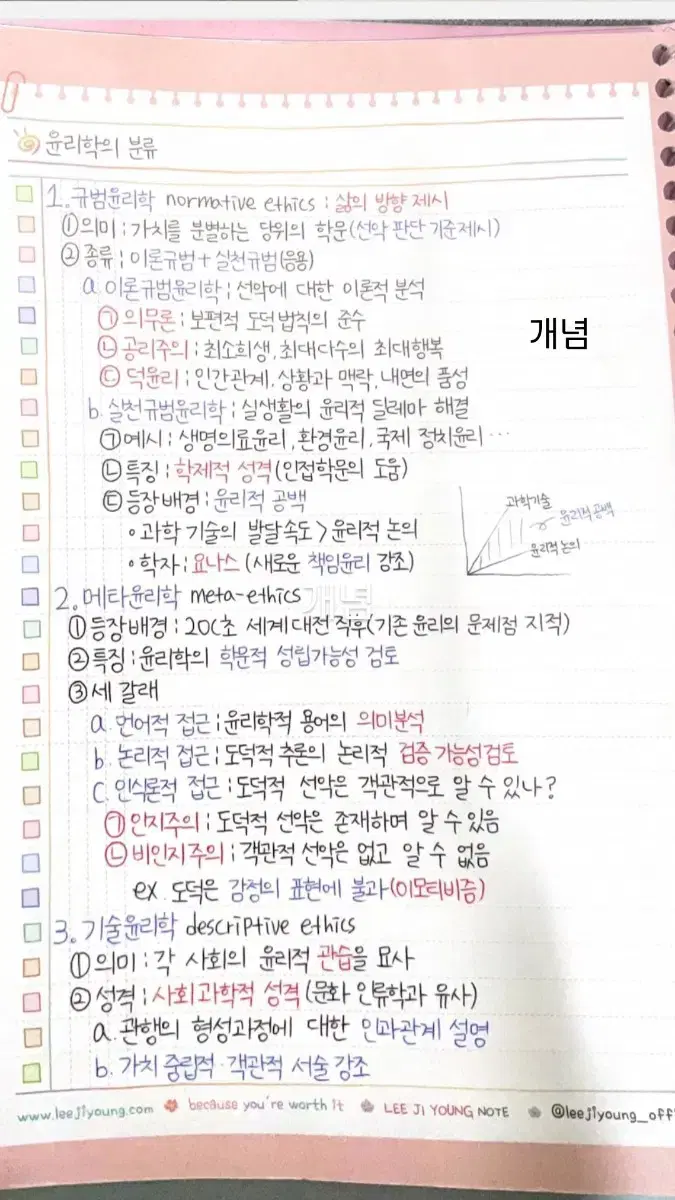 윤리학의 분류
1. 규범윤리학 normative ethics : 삶의 방향 제시
① 의미 : 가치를 분별하는 당위의 학문(선악 판단 기준제시)
② 종류 : 이론규범 + 실천규범(응용)
a. 이론규범윤리학 : 선악에 대한 이론적 분석
㉠ 의무론 : 보편적 도덕법칙의 준수
㉡ 공리주의 : 최소희생, 최대다수의 최대행복
개념
㉢ 덕윤리 : 인간관계, 상황과 맥락, 내면의 품성
b. 실천규범윤리학 : 실생활의 윤리적 딜레마 해결
㉠ 예시 : 생명의료윤리, 환경윤리, 국제 정치윤리…
㉡ 특징 : 학제적 성격(인접학문의 도움)
㉢ 등장 배경 : 윤리적 공백
과학기술
윤리적 공백
윤리적 논의
• 과학 기술의 발달속도 > 윤리적 논의
• 학자 : 요나스 (새로운 책임윤리 강조)
2. 메타윤리학 meta-ethics
개념
① 등장배경 : 20C초 세계대전 직후(기존 윤리의 문제점 지적)
② 특징 : 윤리학의 학문적 성립가능성 검토
③ 세 갈래
a. 언어적 접근 : 윤리학적 용어의 의미분석
b. 논리적 접근 : 도덕적 추론의 논리적 검증 가능성 검토
C. 인식론적 접근 : 도덕적 선악은 객관적으로 알 수 있나?
㉠ 인지주의 : 도덕적 선악은 존재하며 알 수 있음
㉡ 비인지주의 : 객관적 선악은 없고 알 수 없음
ex. 도덕은 감정의 표현에 불과(이모티비즘)
3. 기술윤리학 descriptive ethics
① 의미 : 각 사회의 윤리적 관습을 묘사
② 성격 : 사회과학적 성격(문화 인류학과 유사)
a. 관행의 형성과정에 대한 인과관계 설명
b. 가치 중립적 · 객관적 서술 강조
www.leejiyoung.com because you're worth it LEE JI YOUNG NOTE @leejiyoung_off